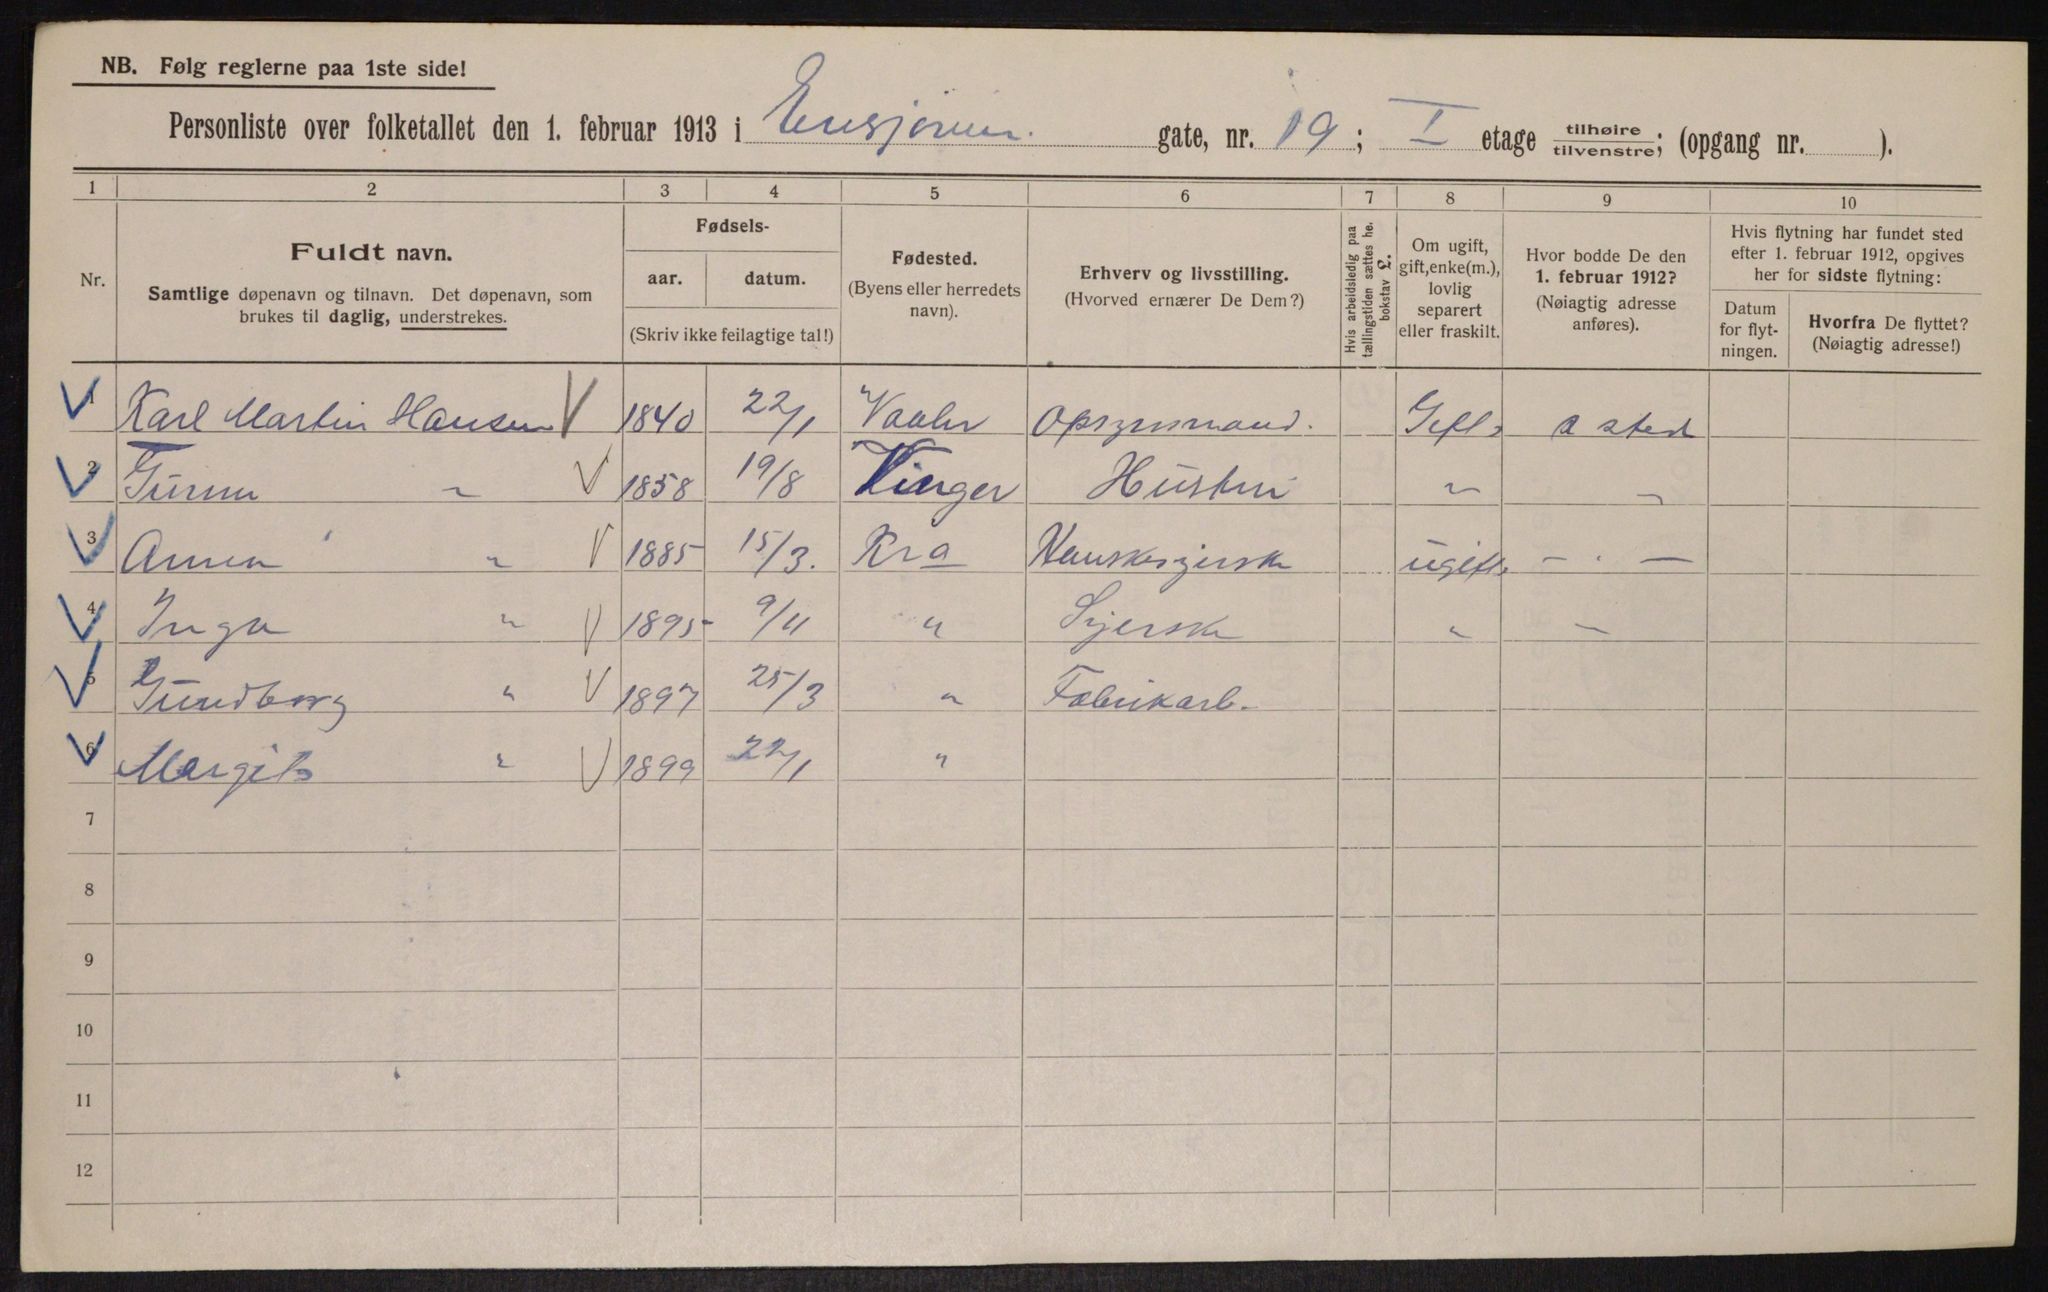 NB. Følg reglerne paa 1ste side!
Personliste over folketallet den 1. februar 1913 i Ensjøveien. gate, nr. 19; I etage tilhøire/tilvenstre; (opgang nr. ).
1 2 3 4 5 6 7 8 9 10
Nr.
Fuldt navn.
Samtlige døpenavn og tilnavn. Det døpenavn, som
brukes til daglig, understrekes.
Fødsels-
aar. datum.
(Skriv ikke feilagtige tal!)
Fødested.
(Byens eller herredets
navn).
Erhverv og livsstilling.
(Hvorved ernærer De Dem?)
Hvis arbeidsledig paa
tællingstiden sættes he.
bokstav L.
Om ugift,
gift, enke(m.),
lovlig
separert
eller fraskilt.
Hvor bodde De den
1. februar 1912?
(Nøiagtig adresse
anføres).
Hvis flytning har fundet sted
efter 1. februar 1912, opgives
her for sidste flytning:
Datum
for flyt-
ningen.
Hvorfra De flyttet?
(Nøiagtig adresse!)
1 Karl Martin Hansen 1840 22/1 Vaaler Opsynsmand. Gift s sted
2 " 1858 19/8 Vinger Hustru " "
3 Anna " 1885 15/3. Kra ugift - . -
4 Inga " 1895 9/11 " Syerske " -
5 Gundborg " 1897 25/3 " Fabrikarb.
6 Margit " 1899 22/1 "
7
8
9
10
11
12